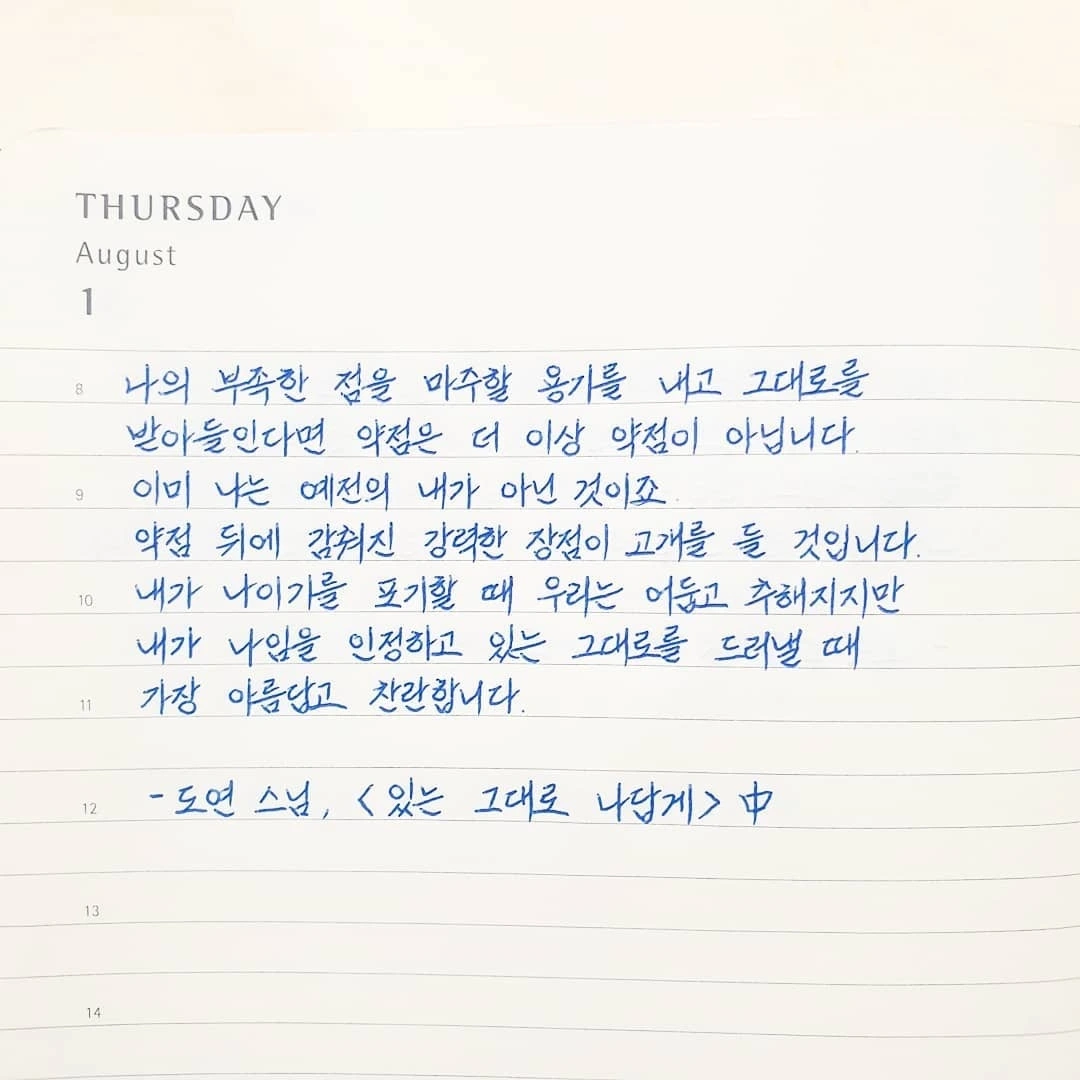 THURSDAY
August
1
8 나의 부족한 점을 마주할 용기를 내고 그대로를
받아들인다면 약점은 더 이상 약점이 아닙니다.
9 이미 나는 예전의 내가 아닌 것이죠.
약점 뒤에 감춰진 강력한 장점이 고개를 들 것입니다.
10 내가 나이기를 포기할 때 우리는 어둡고 추해지지만
내가 나임을 인정하고 있는 그대로를 드러낼 때
11 가장 아름답고 찬란합니다.
12 - 도연 스님, <있는 그대로 나답게> 中
13
14